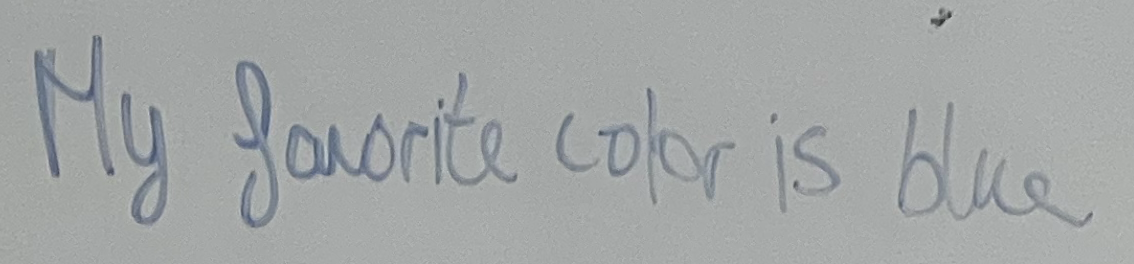 My favorite color is blue